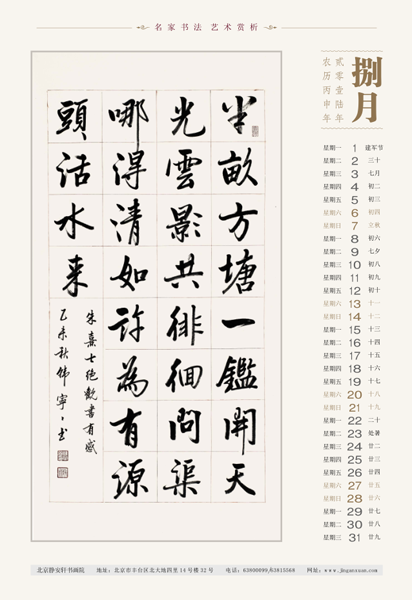 名家书法 艺术赏析
捌月
贰零壹陆年
农历丙申年
半畝方塘一鑑開天
光雲影共徘徊問渠
哪得清如許為有源
頭活水来
朱熹七绝觀書有感
乙未秋
星期一 1 建军节
星期二 2 三十
星期三 3 七月
星期四 4 初二
星期五 5 初三
星期六 6 初四
星期日 7 立秋
星期一 8 初六
星期二 9 七夕
星期三 10 初八
星期四 11 初九
星期五 12 初十
星期六 13 十一
星期日 14 十二
星期一 15 十三
星期二 16 十四
星期三 17 十五
星期四 18 十六
星期五 19 十七
星期六 20 十八
星期日 21 十九
星期一 22 二十
星期二 23 处暑
星期三 24 廿二
星期四 25 廿三
星期五 26 廿四
星期六 27 廿五
星期日 28 廿六
星期一 29 廿七
星期二 30 廿八
星期三 31 廿九
北京静安轩书画院 地址：北京市丰台区北大地四里14号楼32号 电话：63800099/63815568 网址：www.jinganxuan.com